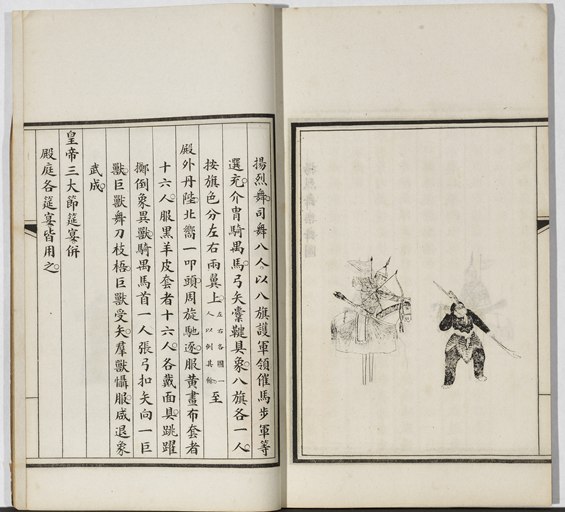 揚烈舞司舞八人以八旗護軍領催馬步軍等
選充介冑騎禺馬弓矢櫜鞬具象八旗各一人
按旗色分左右兩翼上左右各圖一人以例其餘至
殿外丹陛北嚮一叩頭周旋馳逐服黃畫布套者
十六人服黑羊皮套者十六人各戴面具跳躍
擲倒象異獸騎禺馬首一人張弓扣矢向一巨
獸巨獸舞刀枝梧巨獸受矢羣獸懾服咸退象
武成
皇帝三大節筵宴併
殿庭各筵宴皆用之